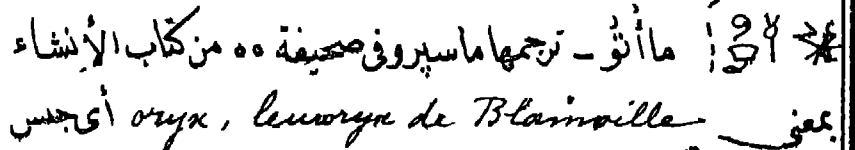 ماأُتُو ـ ترجمها ماسپرو فى صحيفة ٥٥ من كتاب الأنشاء
بمعنى oryx, leucoryx de Blainville أى جنس